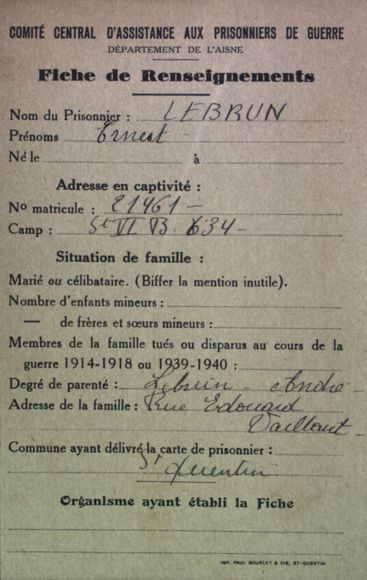 COMITÉ CENTRAL D'ASSISTANCE AUX PRISONNIERS DE GUERRE
DÉPARTEMENT DE L'AISNE
Fiche de Renseignements
Nom du Prisonnier : LEBRUN
Prénoms Ernest -
Né le à
Adresse en captivité :
No matricule : 21461 -
Camp : St VI B. 634 -
Situation de famille :
Marié ou célibataire. (Biffer la mention inutile).
Nombre d'enfants mineurs :
— de frères et sœurs mineurs :
Membres de la famille tués ou disparus au cours de la
guerre 1914-1918 ou 1939-1940 :
Degré de parenté : Lebrun - André -
Adresse de la famille : Rue Edouard
Vaillant -
Commune ayant délivré la carte de prisonnier :
St Quentin
Organisme ayant établi la Fiche
IMP. PAUL BOURLET & CIE, ST-QUENTIN